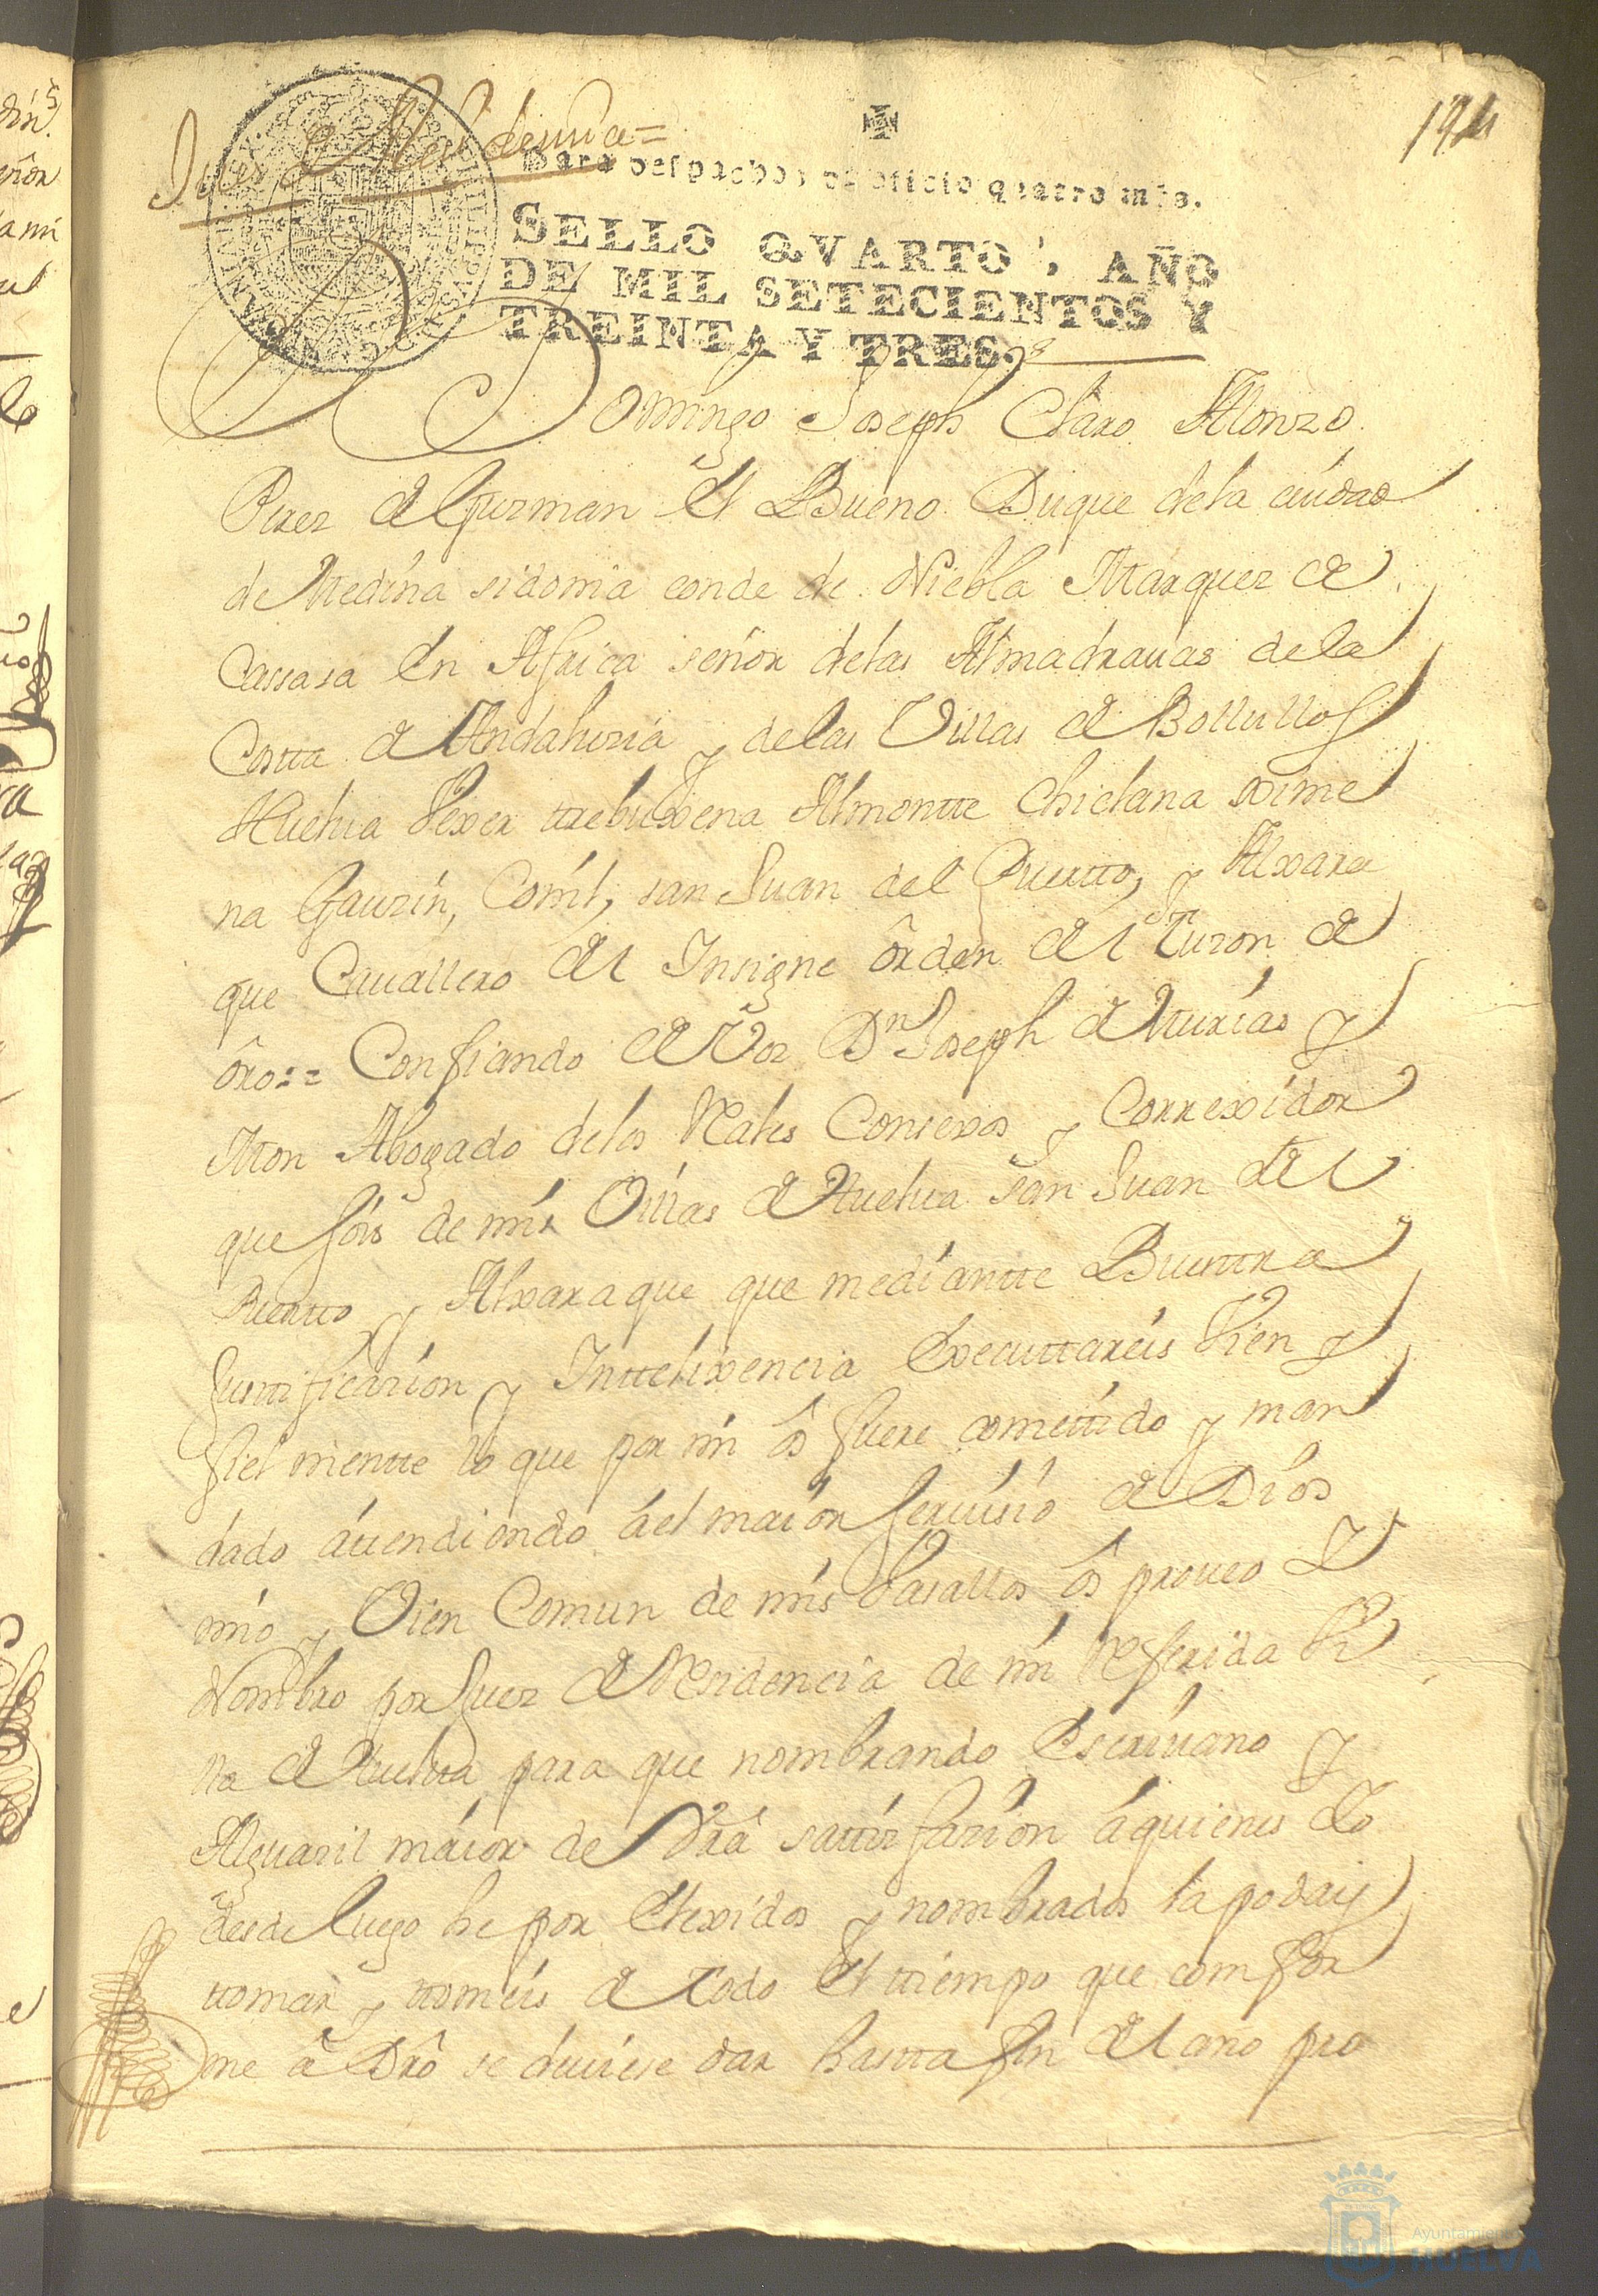 194
Juez de Residencia =
Para despachos de oficio quatro mrs.
SELLO QVARTO, AÑO
DE MIL SETECIENTOS Y
TREINTA Y TRES.
Domingo Joseph Claro Alonzo
Perez de Guzman el Bueno Duque dela ciudad
de Medina sidonia conde de Niebla Marquez de
Cassasa en Africa señor delas Almadrauas dela
Costta de Andaluzia y delas Villas de Bollullos
Huelua Vexer trebuxena Almontte Chiclana xime
na Gauzin, Conil, san Juan del Puertto, y Alxara
que Cauallero del Insigne ôrden del Tuzon de
ôro:= Confiando de Vos Dn Joseph de Aturias y
Mon Abogado delos Rales Consexos y Correxidor
que sois de mis Villas de Huelua san Juan del
Puertto y Alxaraque que mediantte Buesttra
Justtificazion y Inttelixencia Executtareis Bien y
fielmentte lo que por mi ôs fuere comettido y man
dado attendiendo áel maior seruisio de Dios
mio y Vien Comun de mis Vasallos ôs proueo y
Nombro por Juez de Residencia de mi Referida Vi
lla de Huelua para que nombrando Escriuano y
Alguazil maior de Vrâ sattisfazion á quienes Yo
desde luego he por Elexidos y nombrados la podais
ttomar y ttomeis de todo el ttiempo que comfor
me â Drô se deuiese dar hastta fin del año pro
Ayuntamiento de
HUELVA